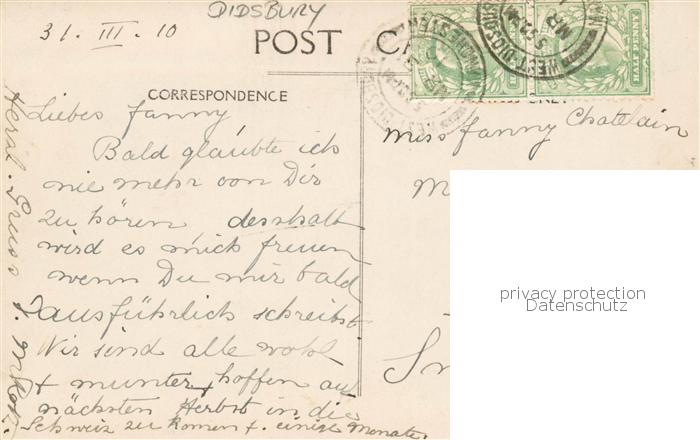 DIDSBURY
31. III. 10
POST CA
CORRESPONDENCE
HALF PENNY
WEST DIDSBURY
Liebes Fanny
Bald glaubte ich
nie mehr von Dir
zu hören desshalb
wird es mich freuen
wenn Du mir bald
ausführlich schreibst
Wir sind alle wohl
+ munter + hoffen auf
nächsten Herbst in die
Schweiz zu komen f. einige Monate.
Herzl. Gruss
Miss Fanny Chatelain
M
privacy protection
Datenschutz